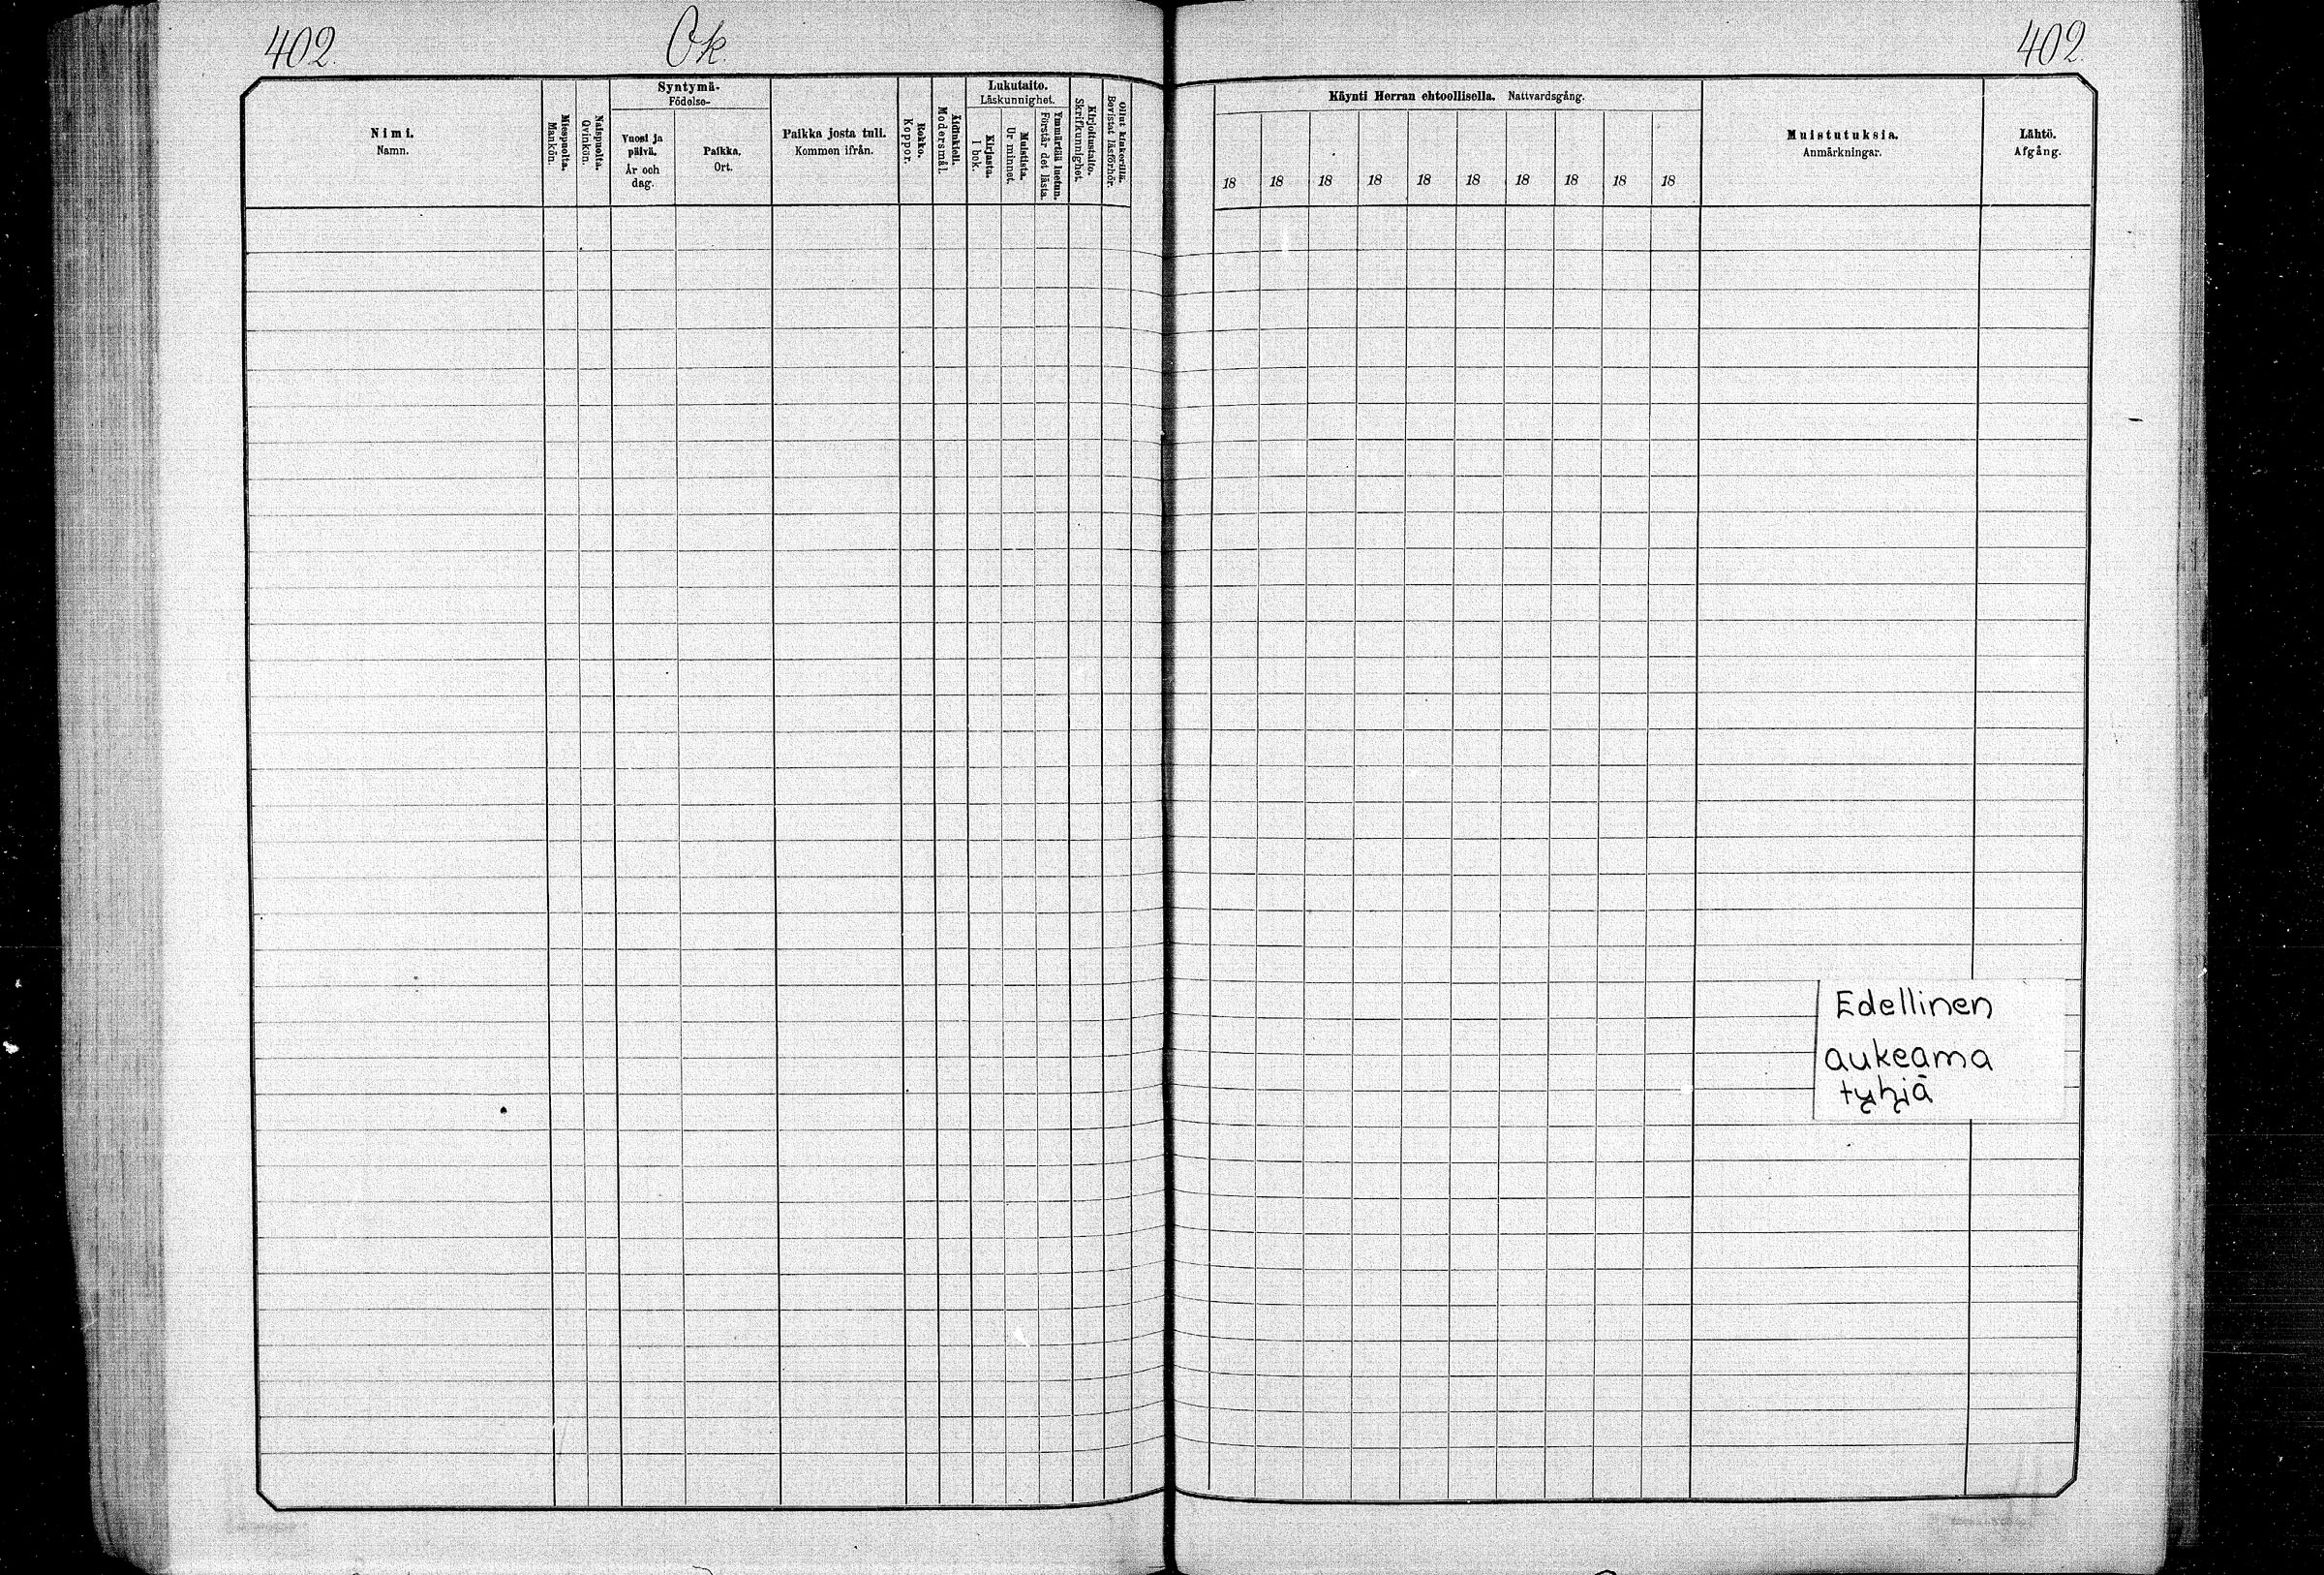 402.
Ok.
402.
Nimi.
Namn.
Miespuolta.
Mankön.
Naispuolta.
Qvinkön.
Syntymä-
Födelse-
Vuosi ja
päivä.
År och
dag.
Paikka.
Ort.
Paikka josta tuli.
Kommen ifrån.
Rokko.
Koppor.
Äidinkieli.
Modersmål.
Lukutaito.
Läskunnighet.
Kirjasta.
I bok.
Muistista.
Ur minnet.
Ymmärtää luetun.
Förstår det lästa.
Kirjoitustaito.
Skrifkunnighet.
Ollut kinkerillä.
Bevistat läsförhör.
Käynti Herran ehtoollisella. Nattvardsgång.
18 18 18 18 18 18 18 18 18 18
Muistutuksia.
Anmärkningar.
Lähtö.
Afgång.
Edellinen
aukeama
tyhjä